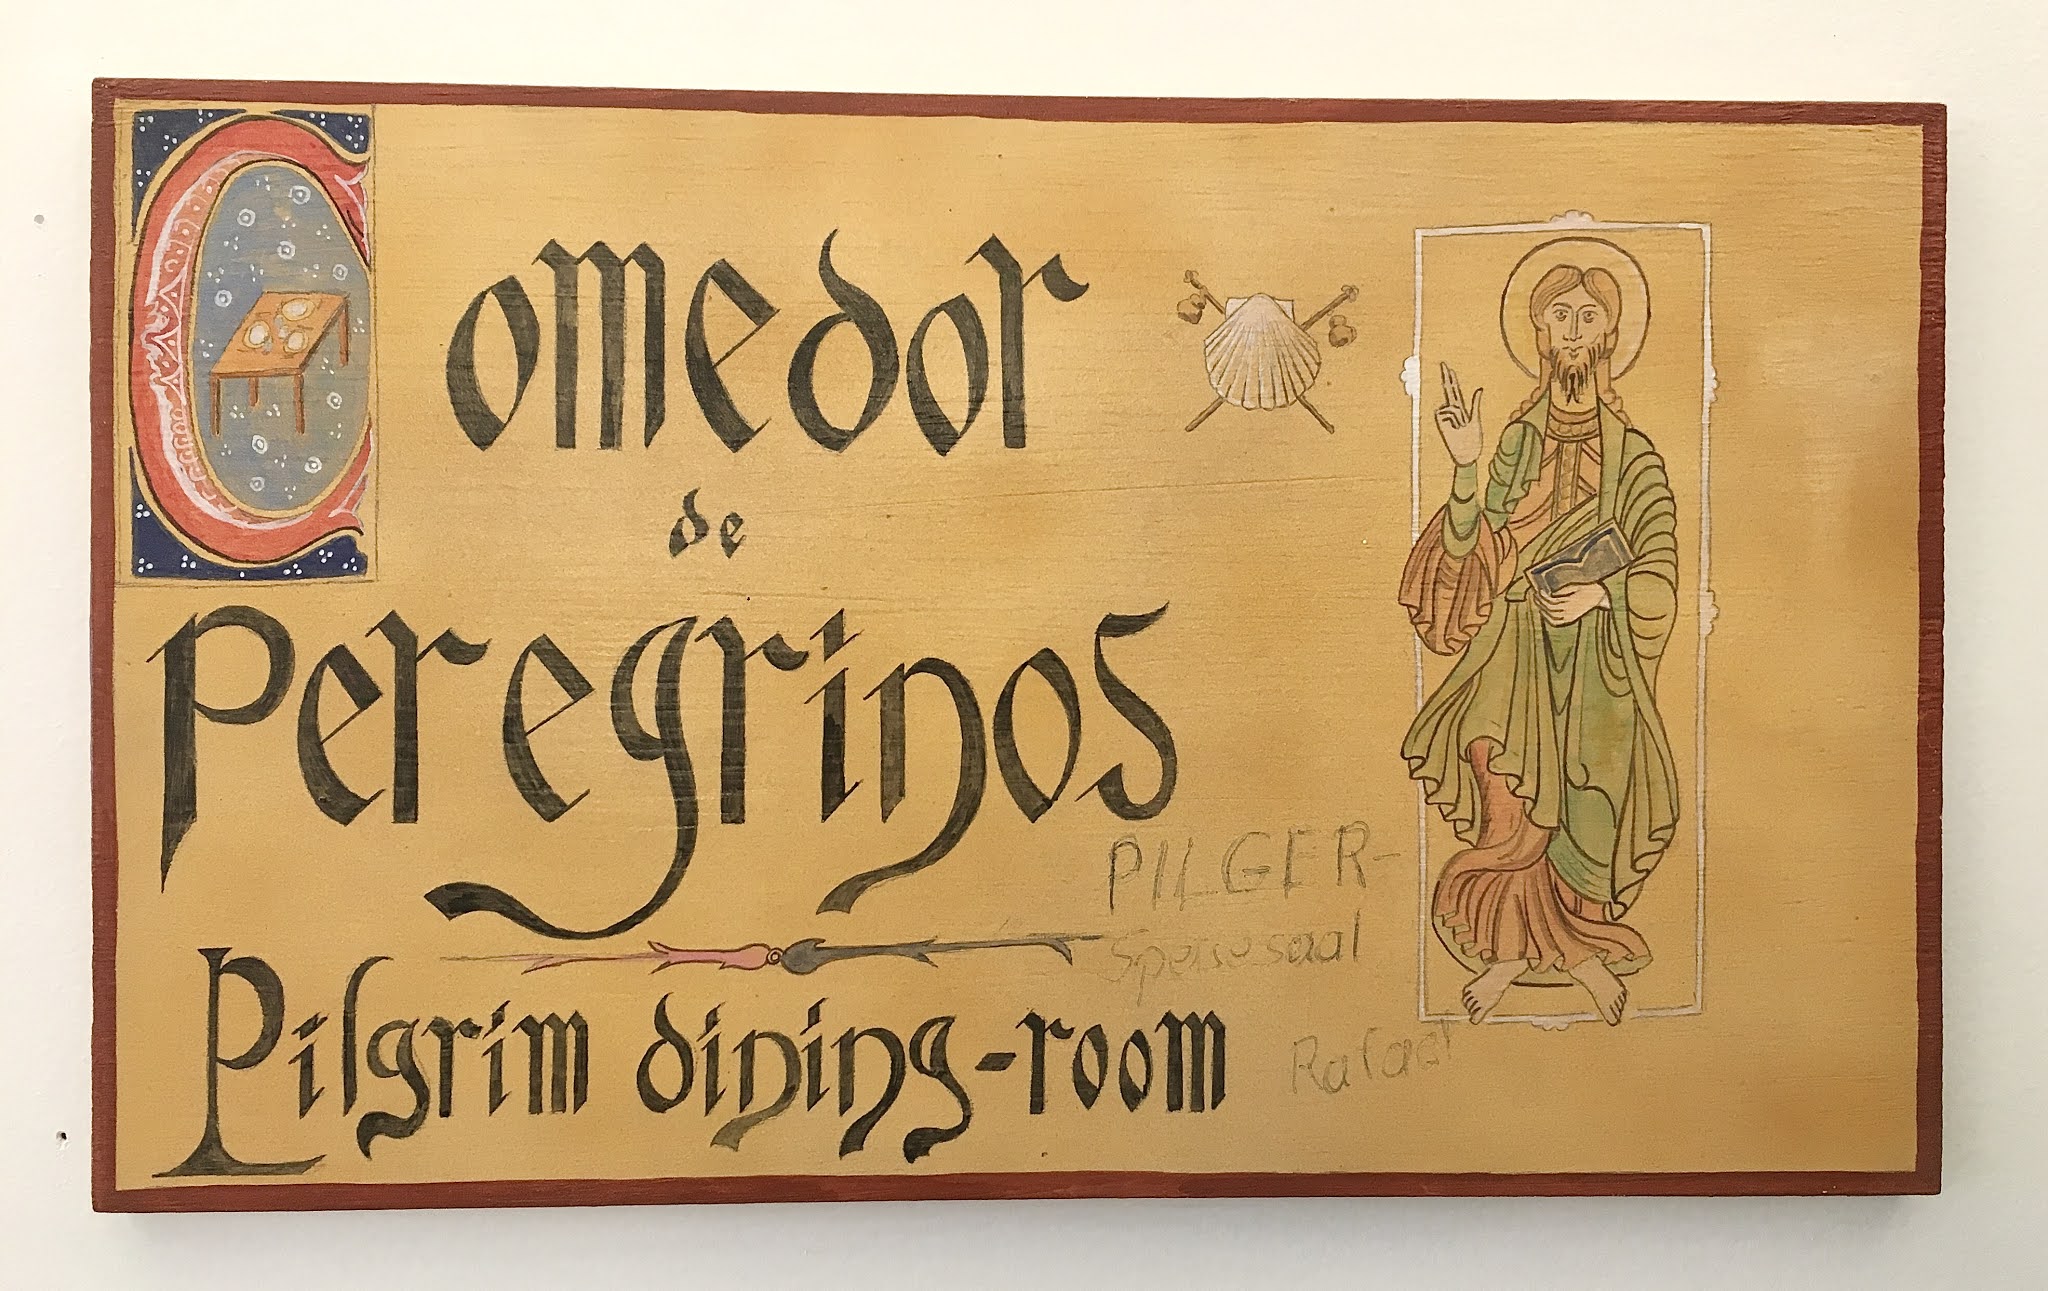 Comedor
de
Peregrinos
PILGER-
Speisesaal
Pilgrim dining-room
Rafael